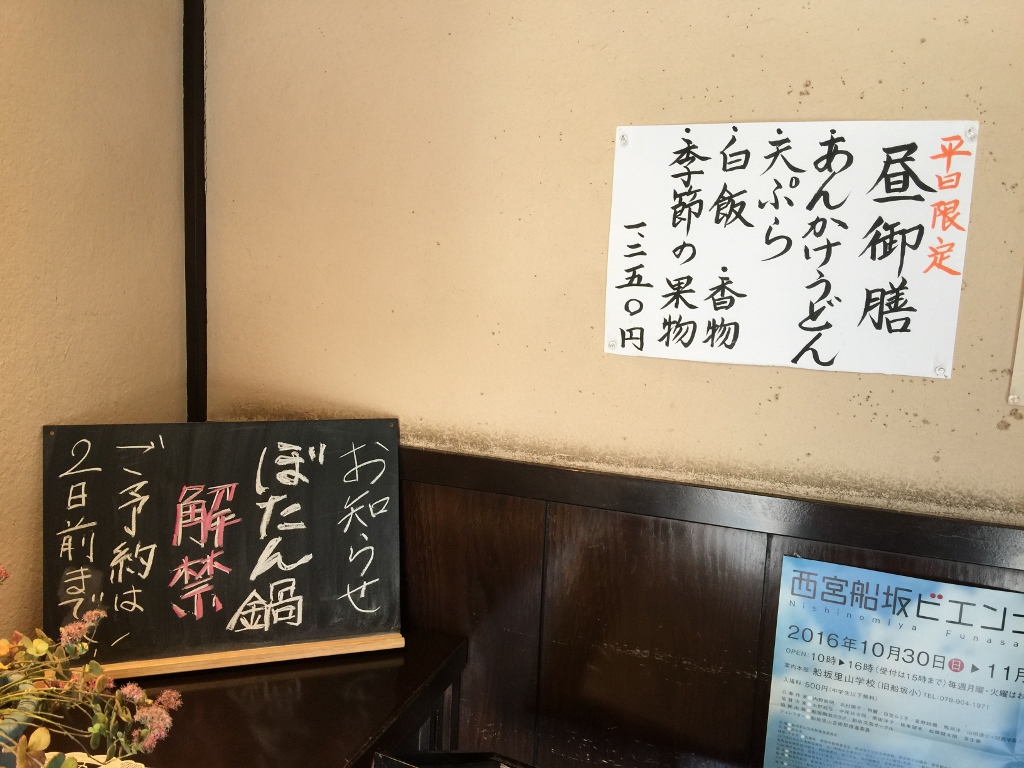 平日限定
昼御膳
あんかけうどん
天ぷら
白飯 香物
季節の果物
一、二五〇円
お知らせ
ぼたん鍋
解禁
ご予約は
2日前まで
西宮船坂ビエン
Nishinomiya Funasa
2016年10月30日(日)▶11月
OPEN:10時▶16時(受付は15時まで)毎週月曜・火曜はお
案内本部 船坂里山学校(旧船坂小) TEL:078-904-1971
入場料:500円(中学生以下無料)